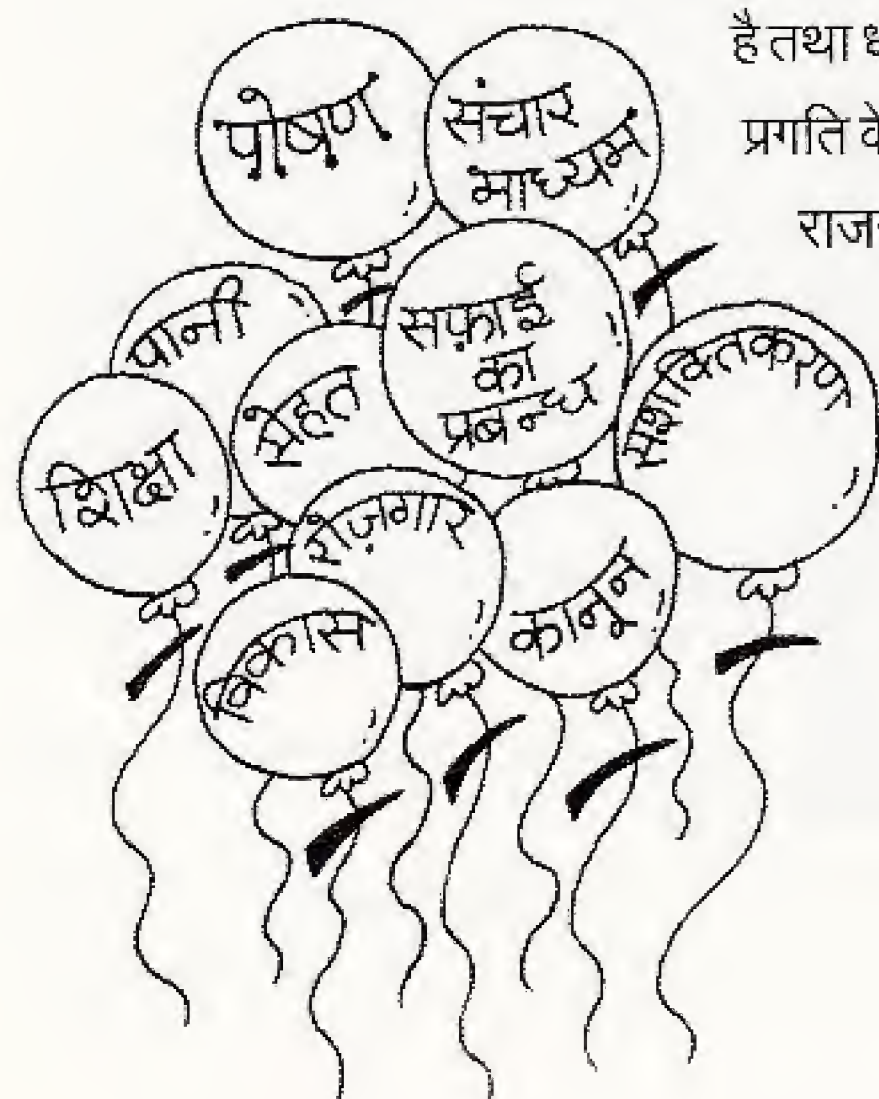 है तथा
प्रगति
पोषण
संचार
माध्यम
पानी
सेहत
सफ़ाई
का
प्रबन्ध
सशक्तिकरण
शिक्षा
रोज़गार
कानून
विकास